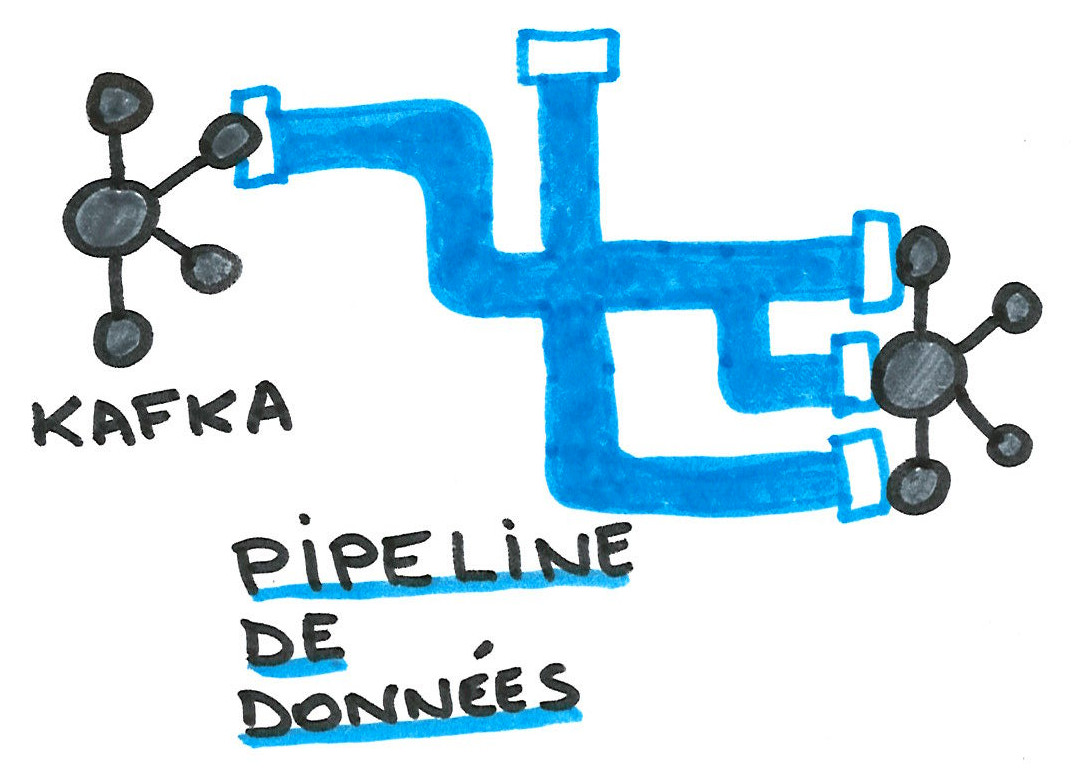 KAFKA
PIPELINE
DE
DONNÉES